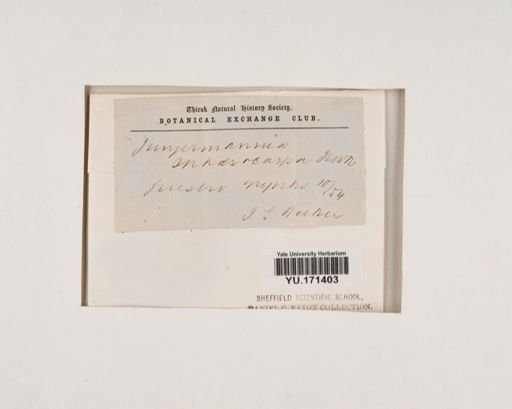 Thirsk Natural History Society.
BOTANICAL EXCHANGE CLUB.
Jungermannia
sphaerocarpa Hook
N Yorks 10/54
J G Baker
Yale University Herbarium
YU.171403
SHEFFIELD SCIENTIFIC SCHOOL,
DANIEL C. EATON COLLECTION.